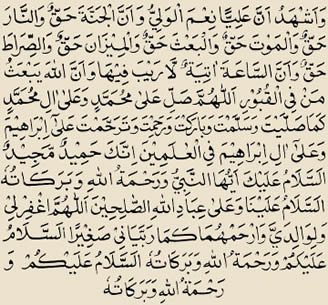 وَاَشْهَدُ اَنَّ عَلِيًّا نِعْمَ الْوَلِيُّ وَاَنَّ الْجَنَّةَ حَقٌّ وَالنَّارَ
حَقٌّ وَالْمَوتَ حَقٌّ وَالْبَعْثَ حَقٌّ وَالْمِيْزَانَ حَقٌّ وَالصِّرَاطَ
حَقٌّ وَاَنَّ السَّاعَةَ اٰتِيَةٌ لَارَيْبَ فِيْهَا وَاَنَّ اللهَ يَبْعَثُ
مَنْ فِي الْقُبُوْرِ اَللّٰهُمَّ صَلِّ عَلٰى مُحَمَّدٍ وَعَلٰى اٰلِ مُحَمَّدٍ
كَمَا صَلَّيْتَ وَسَلَّمْتَ وَبَارَكْتَ وَرَحِمْتَ وَتَرَحَّمْتَ عَلٰى اِبْرَاهِيْمَ
وَعَلٰى اٰلِ اِبْرَاهِيْمَ فِي الْعٰلَمِيْنَ اِنَّكَ حَمِيْدٌ مَّجِيْدٌ
اَلسَّلَامُ عَلَيْكَ اَيُّهَا النَّبِيُّ وَرَحْمَةُ اللهِ وَبَرَكَاتُهُ
اَلسَّلَامُ عَلَيْنَا وَعَلٰى عِبَادِ اللهِ الصّٰلِحِيْنَ اَللّٰهُمَّ اغْفِرْلِيْ
وَلِوَالِدَيَّ وَارْحَمْهُمَا كَمَا رَبَّيَانِيْ صَغِيْرًا اَلسَّلَامُ
عَلَيْكُمْ وَرَحْمَةُ اللهِ وَبَرَكَاتُهُ اَلسَّلَامُ عَلَيْكُمْ وَ
رَحْمَةُ اللهِ وَبَرَكَاتُهُ